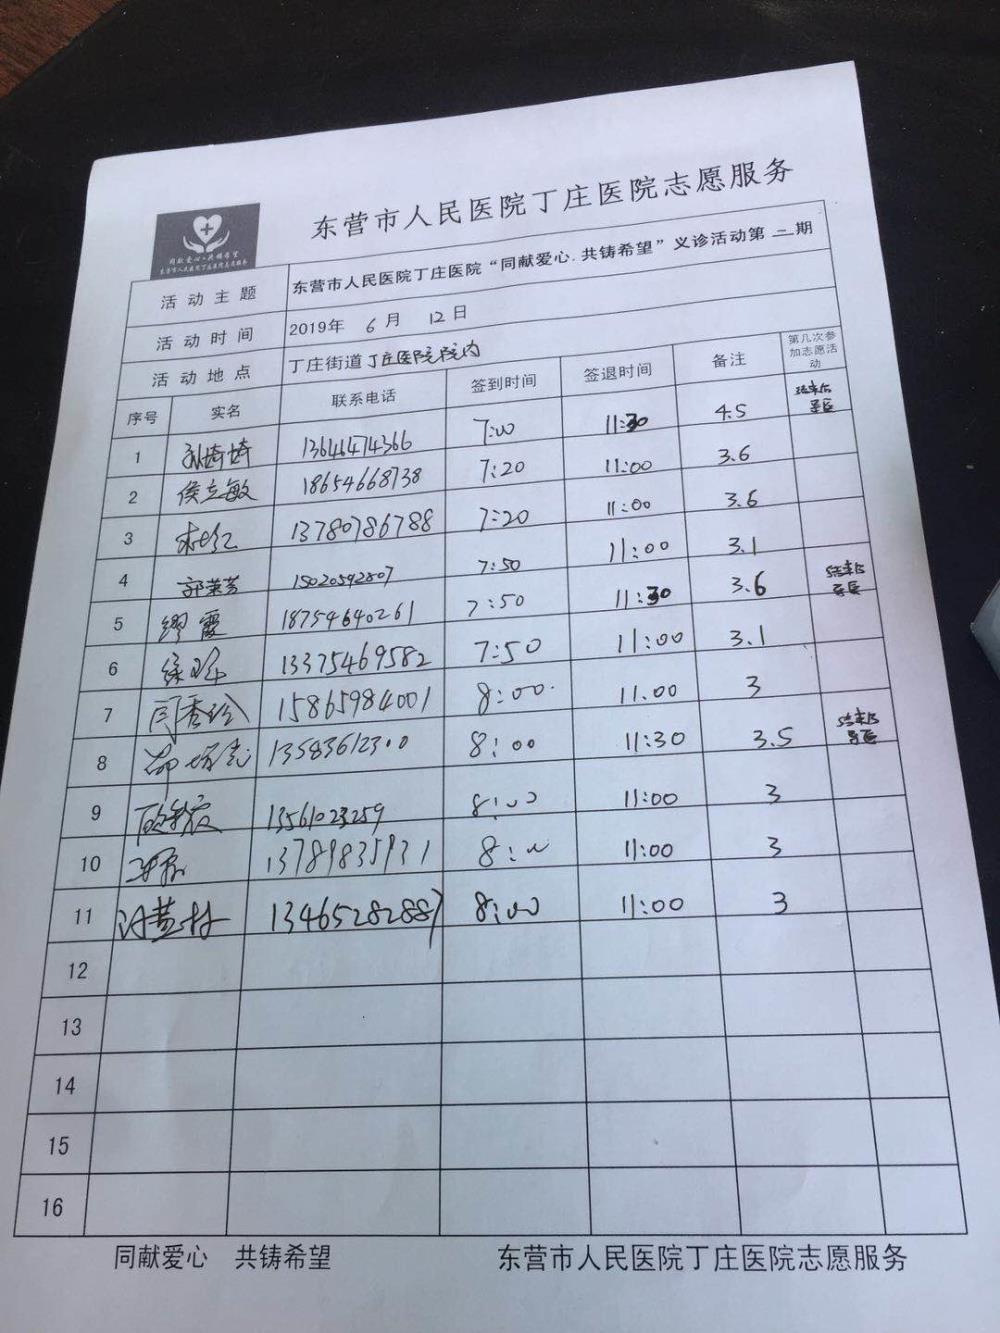 东营市人民医院丁庄医院志愿服务
同献爱心·共铸希望
东营市人民医院丁庄医院志愿服务
活动主题 东营市人民医院丁庄医院“同献爱心.共铸希望”义诊活动第二期
活动时间 2019年 6月 12日
活动地点 丁庄街道丁庄医院院内
序号 实名 联系电话 签到时间 签退时间 备注 第几次参加志愿活动
1 孙琦琦 13646474366 7:00 11:30 4.5 结束后
2 侯立敏 18654668738 7:20 11:00 3.6
3 13780786788 7:20 11:00 3.6
4 郭荣芳 15020592807 7:50 11:00 3.1
5 缪霞 18754640261 7:50 11:30 3.6 结束后
6 13375469582 7:50 11:00 3.1
7 闫秀玲 15865984001 8:00 11:00 3
8 13583612300 8:00 11:30 3.5 结束后
9 13561023259 8:00 11:00 3
10 13789835931 8:00 11:00 3
11 13465282887 8:00 11:00 3
12
13
14
15
16
同献爱心 共铸希望 东营市人民医院丁庄医院志愿服务